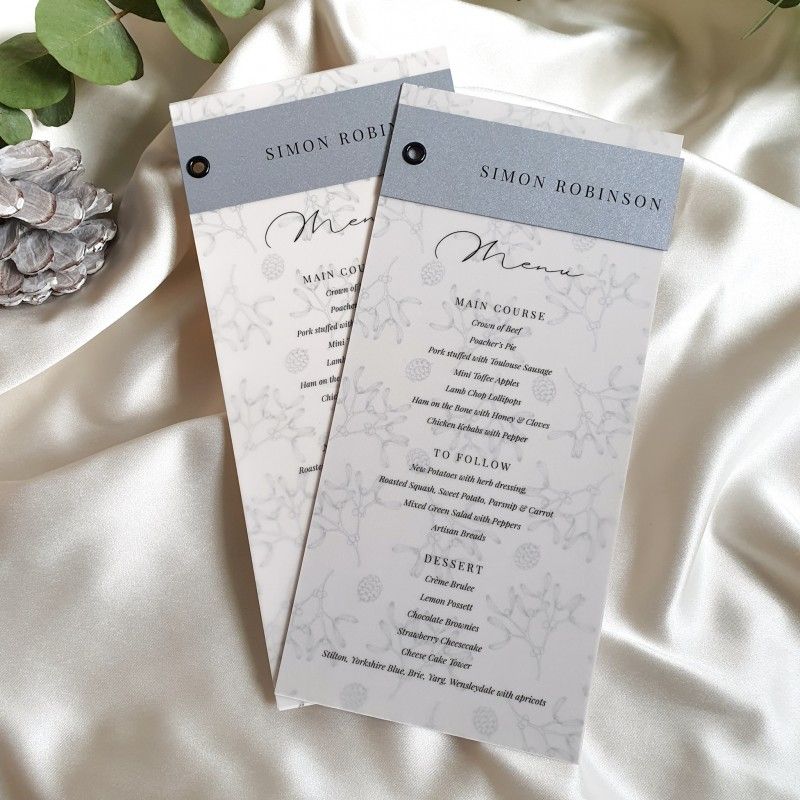 SIMON ROBIN
Men
MAIN COU
Crown of
Poacher
Pork stuffed with
Mini
Lamb
Ham on the
Chic
Roaste
SIMON ROBINSON
Menu
MAIN COURSE
Crown of Beef
Poacher's Pie
Pork stuffed with Toulouse Sausage
Mini Toffee Apples
Lamb Chop Lollipops
Ham on the Bone with Honey & Cloves
Chicken Kebabs with Pepper
TO FOLLOW
New Potatoes with herb dressing,
Roasted Squash, Sweet Potato, Parsnip & Carrot
Mixed Green Salad with Peppers
Artisan Breads
DESSERT
Crème Brulee
Lemon Possett
Chocolate Brownies
Strawberry Cheesecake
Cheese Cake Tower
Stilton, Yorkshire Blue, Brie, Yarg, Wensleydale with apricots